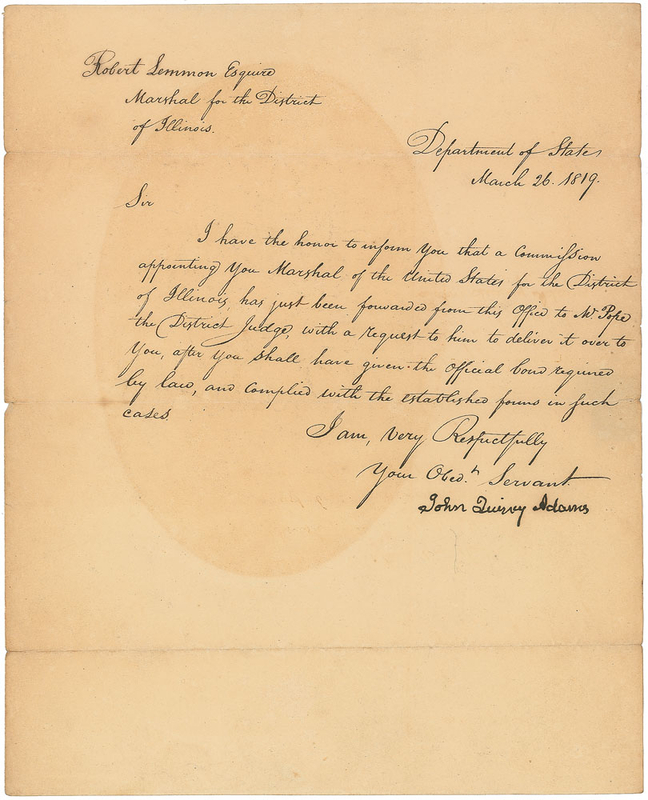 Robert Lemmon Esquire
Marshal for the District
of Illinois.
Department of State
March 26. 1819.
Sir
I have the honor to inform You that a Commission
appointing You Marshal of the United States for the District
of Illinois, has just been forwarded from this Office to Mr Pope
the District Judge, with a request to him to deliver it over to
You, after You shall have given the Official bond required
by law, and complied with the established forms in such
cases
I am, very Respectfully
Your Obedt Servant
John Quincy Adams